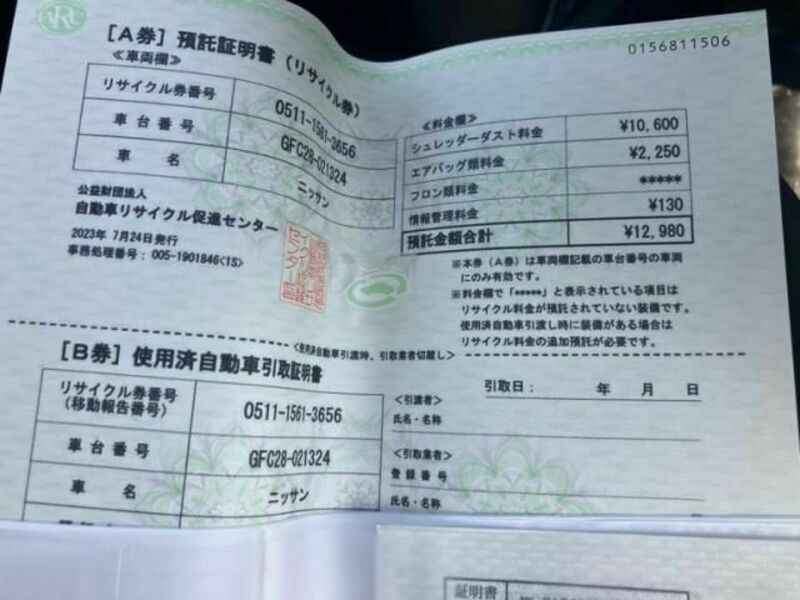 ARC
[A券] 預託証明書 (リサイクル券)
0156811506
≪車両欄≫
リサイクル券番号 0511-1561-3656
車台番号 GFC28-021324
車名 ニッサン
公益財団法人
自動車リサイクル促進センター
2023年 7月24日発行
事務処理番号：005-1901846<1S>
≪料金欄≫
シュレッダーダスト料金 ¥10,600
エアバッグ類料金 ¥2,250
フロン類料金 *****
情報管理料金 ¥130
預託金額合計 ¥12,980
※本券（A券）は車両欄記載の車台番号の車両
にのみ有効です。
※料金欄で「*****」と表示されている項目は
リサイクル料金が預託されていない装備です。
使用済自動車引渡し時に装備がある場合は
リサイクル料金の追加預託が必要です。
<使用済自動車引渡時、引取業者切離し>
[B券] 使用済自動車引取証明書
リサイクル券番号
(移動報告番号) 0511-1561-3656
車台番号 GFC28-021324
車名 ニッサン
引取日： 年 月 日
<引渡者>
氏名・名称
<引取業者>
登録番号
氏名・名称
証明書